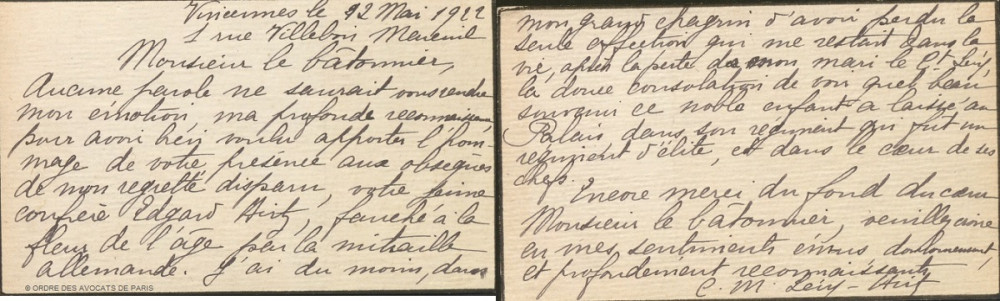 Vincennes le 12 Mai 1922
1 rue Villebois Mareuil
Monsieur le bâtonnier,
Aucune parole ne saurait vous rendre
mon émotion, ma profonde reconnaissance
pour avoir bien voulu apporter l'hom-
mage de votre présence aux obsèques
de mon regretté disparu, votre jeune
confrère Edgard Hirtz, fauché à la
fleur de l'âge par la mitraille
allemande. J'ai du moins, dans
© ORDRE DES AVOCATS DE PARIS
mon grand chagrin d'avoir perdu la
seule affection qui me restait dans la
vie, après la perte de mon mari le Ct Lévy,
la douce consolation de voir quel beau
souvenir ce noble enfant a laissé au
Palais dans son régiment qui fut un
régiment d'élite, et dans le cœur de ses
chefs.
Encore merci du fond du cœur
Monsieur le bâtonnier, veuillez croire
en mes sentiments émus douloureusement,
et profondément reconnaissants
C. M. Lévy-Hirtz